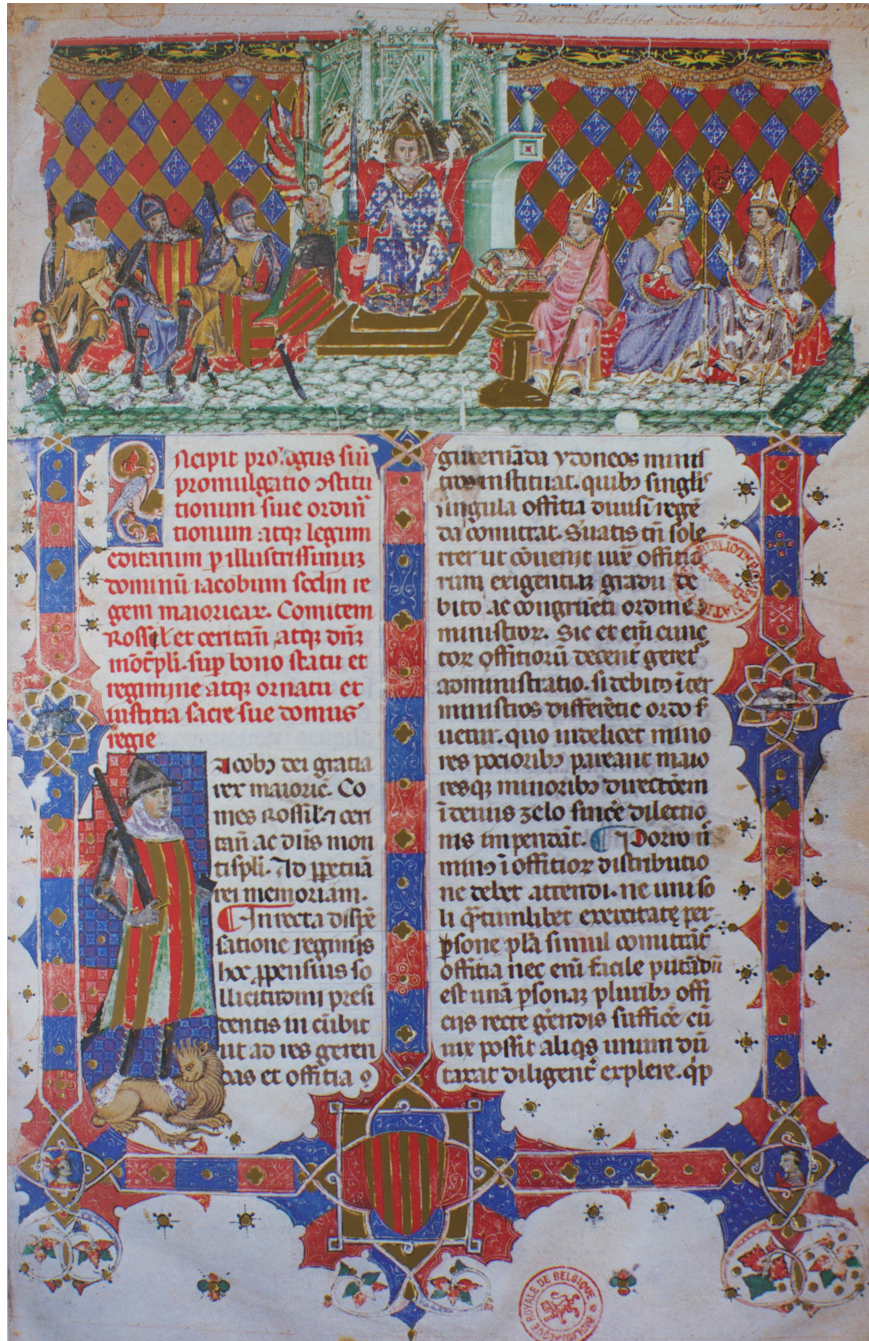 Incipit prologus sup
promulgatio ꝯstitu
tionum siue ordina
tionum atqꝫ legum
editarum ꝑ illustrissimum
dominū iacobum scdm re
gem maioricar. Comitem
Rossil et ceritan atqꝫ dnm
mōtꝑli. sup bono statu et
regimine atqꝫ ornatu et
iustitia sacre sue domus
regie
Iacobꝫ dei gratia
rex maioric. Co
mes Rossil ceri
tan ac dnis mon
tispli. Ad ꝑpetuā
rei memoriam.
In recta dispē
satione regiminis
hoc ꝓpensius so
llicitudini presi
dentis incūbit
ut ad res geren
das et offitia ꝯ
gubernāda ydoneos minis
tros instituat. quibꝫ singlis
singula offitia diuisī regē
da comittat. Suatis tn sole
rter ut cōuenit iuxᷓ offitio
rum exigentiā gradu de
bito ac congrueti ordine
ministror. Sic et eni cunc
tor offitioꝝ decent geret
administratio. si debitꝫ īter
ministros differētie ordo s
uetur. quo uidelicet mino
res pocioribꝫ pareant maio
resqꝫ minoribꝫ directōem
īdentius zelo sincē dilectio
nis impendāt. Porro n
minꝫ ī offitior distributio
ne debet attendi. ne uni so
li qᷓtumlibet exercitate per
sone plᷓa simul comittāt
offitia nec eni facile putādū
est unā ꝑsonā pluribꝫ offi
ciis recte gerēdis sufficē cū
uix possit aliqs unum dū
taxat diligent explere. qꝓ
BIBLIOTHEQUE ROYALE DE BELGIQUE